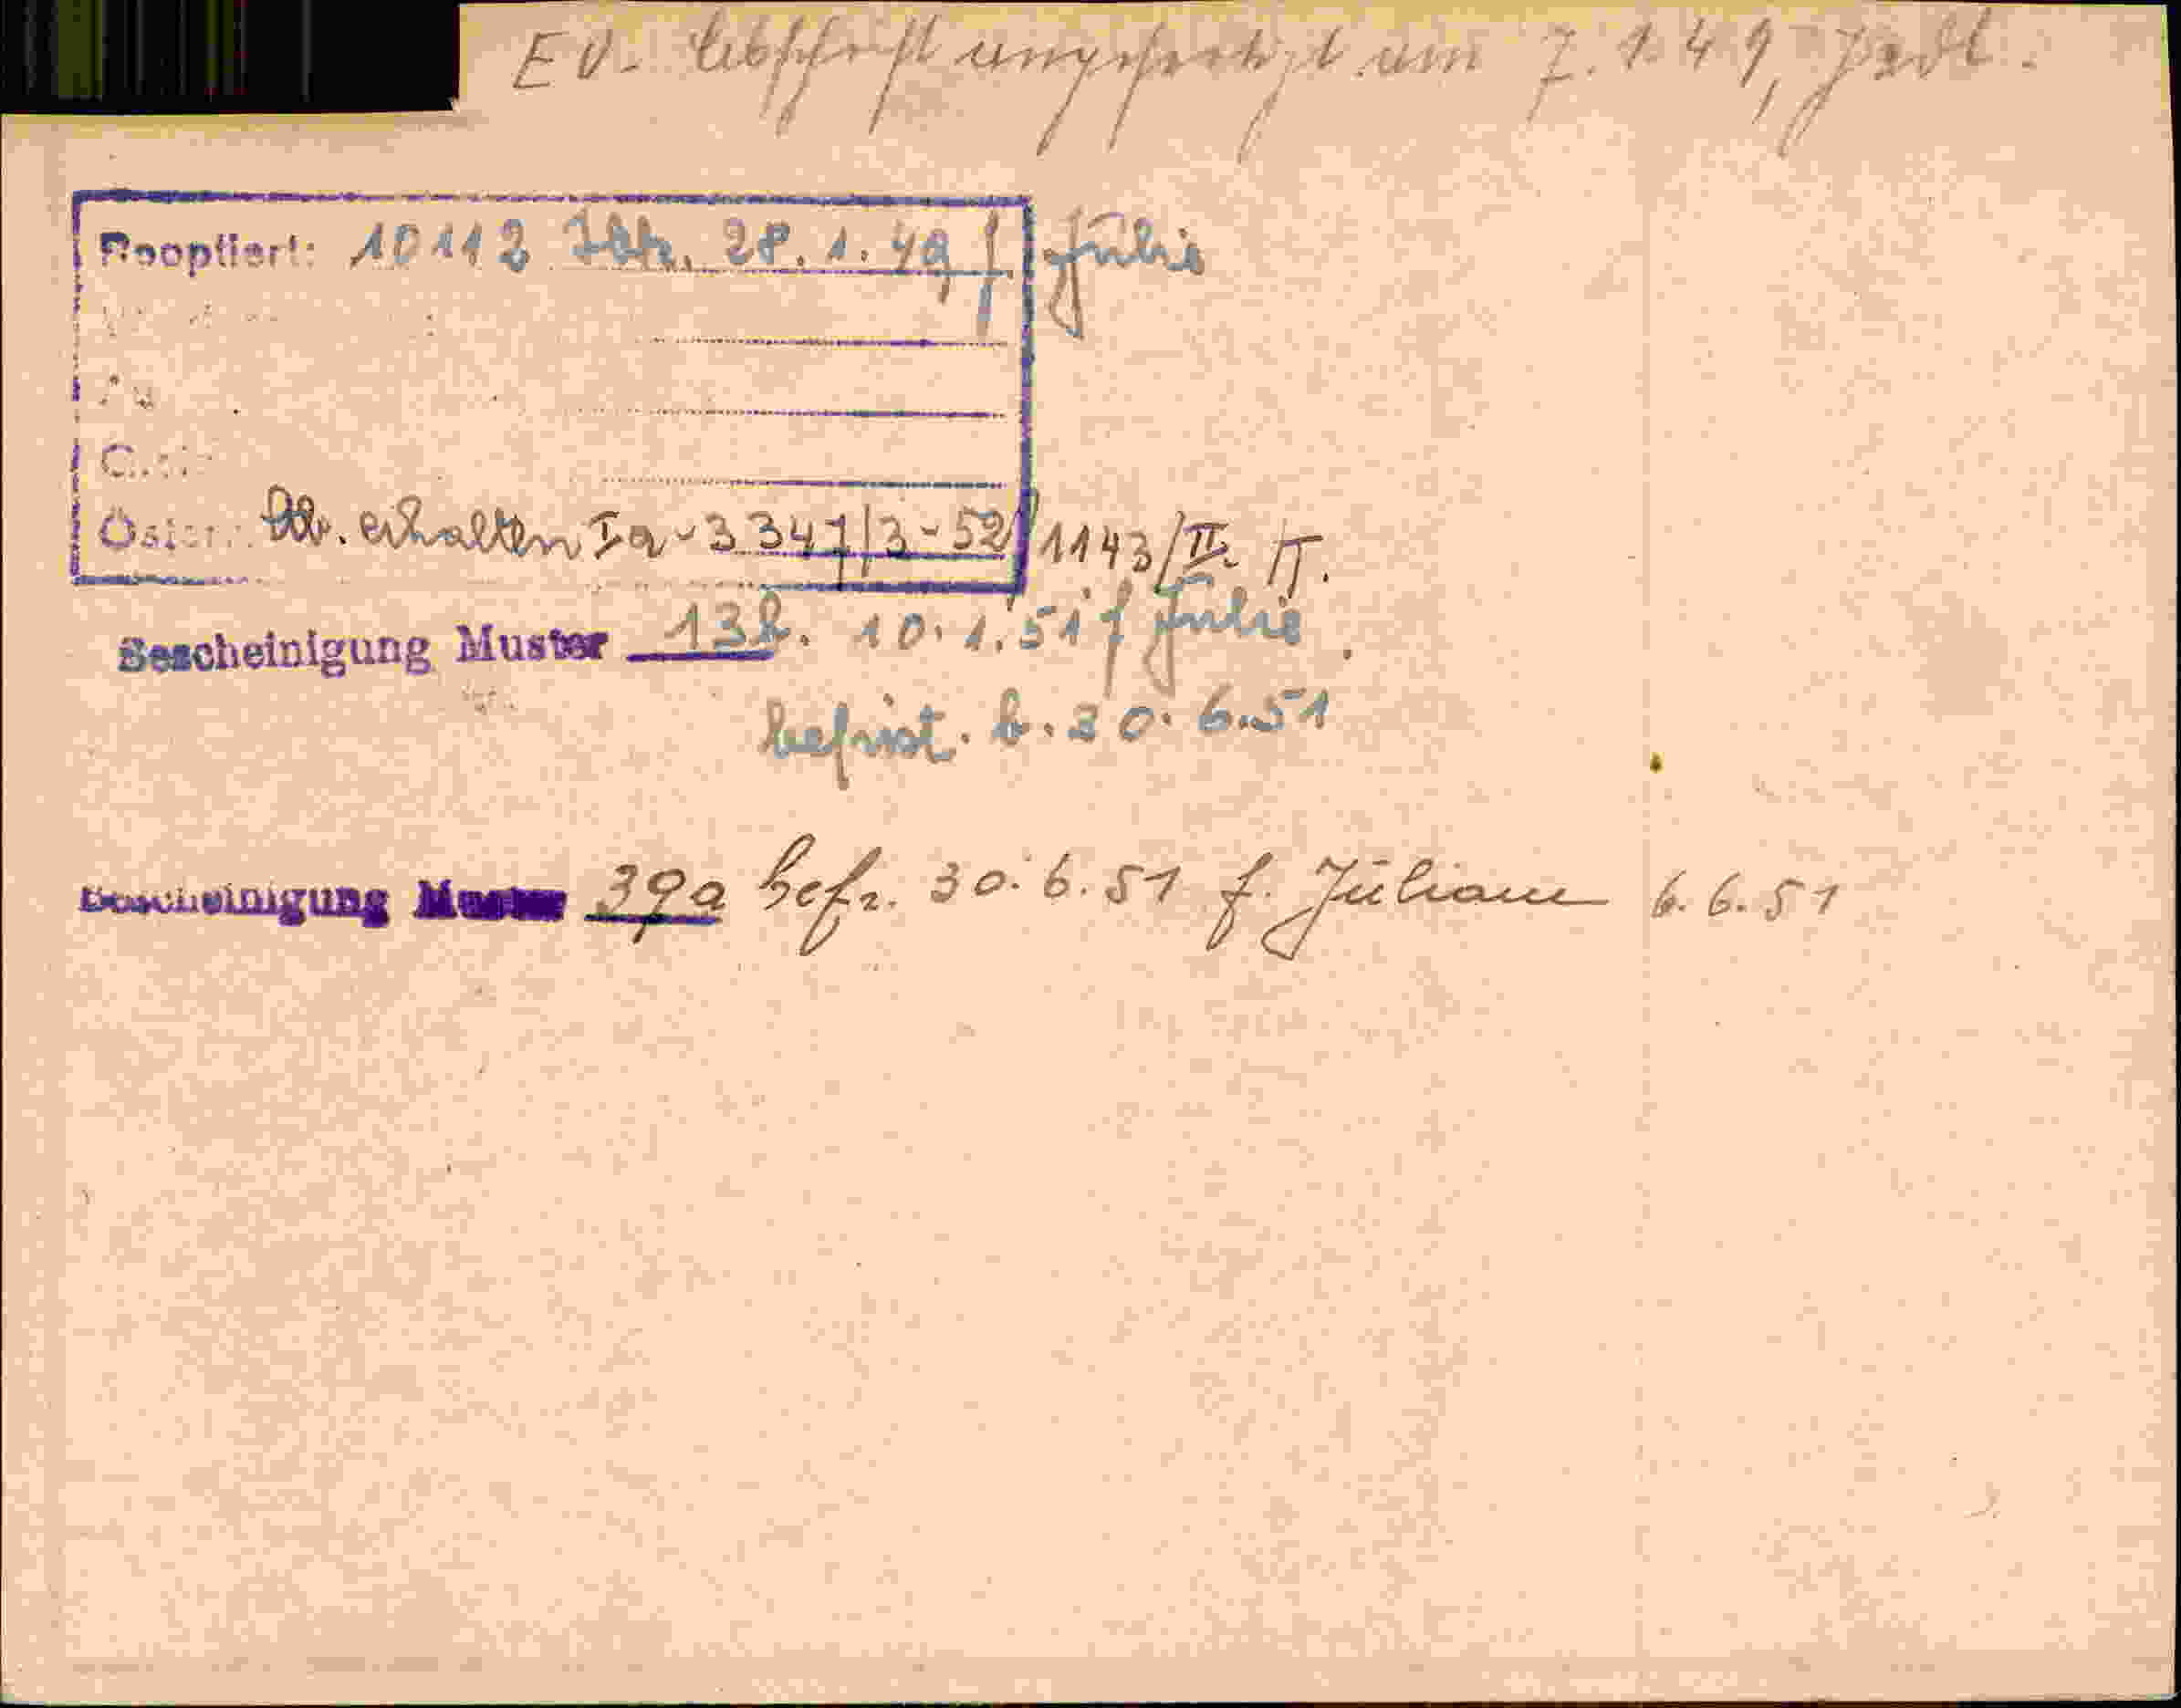 EV. Abschrift angefertigt am 7.1.49,
Reoptiert: 10112 28.1.49 f Julie
Österr. erhalten Ia-3347/3-52/1143/II
Bescheinigung Muster 13b. 10.1.51 f Julie
befrist. b. 30.6.51
Bescheinigung Muster 39a befr. 30.6.51 f. Juliane 6.6.51